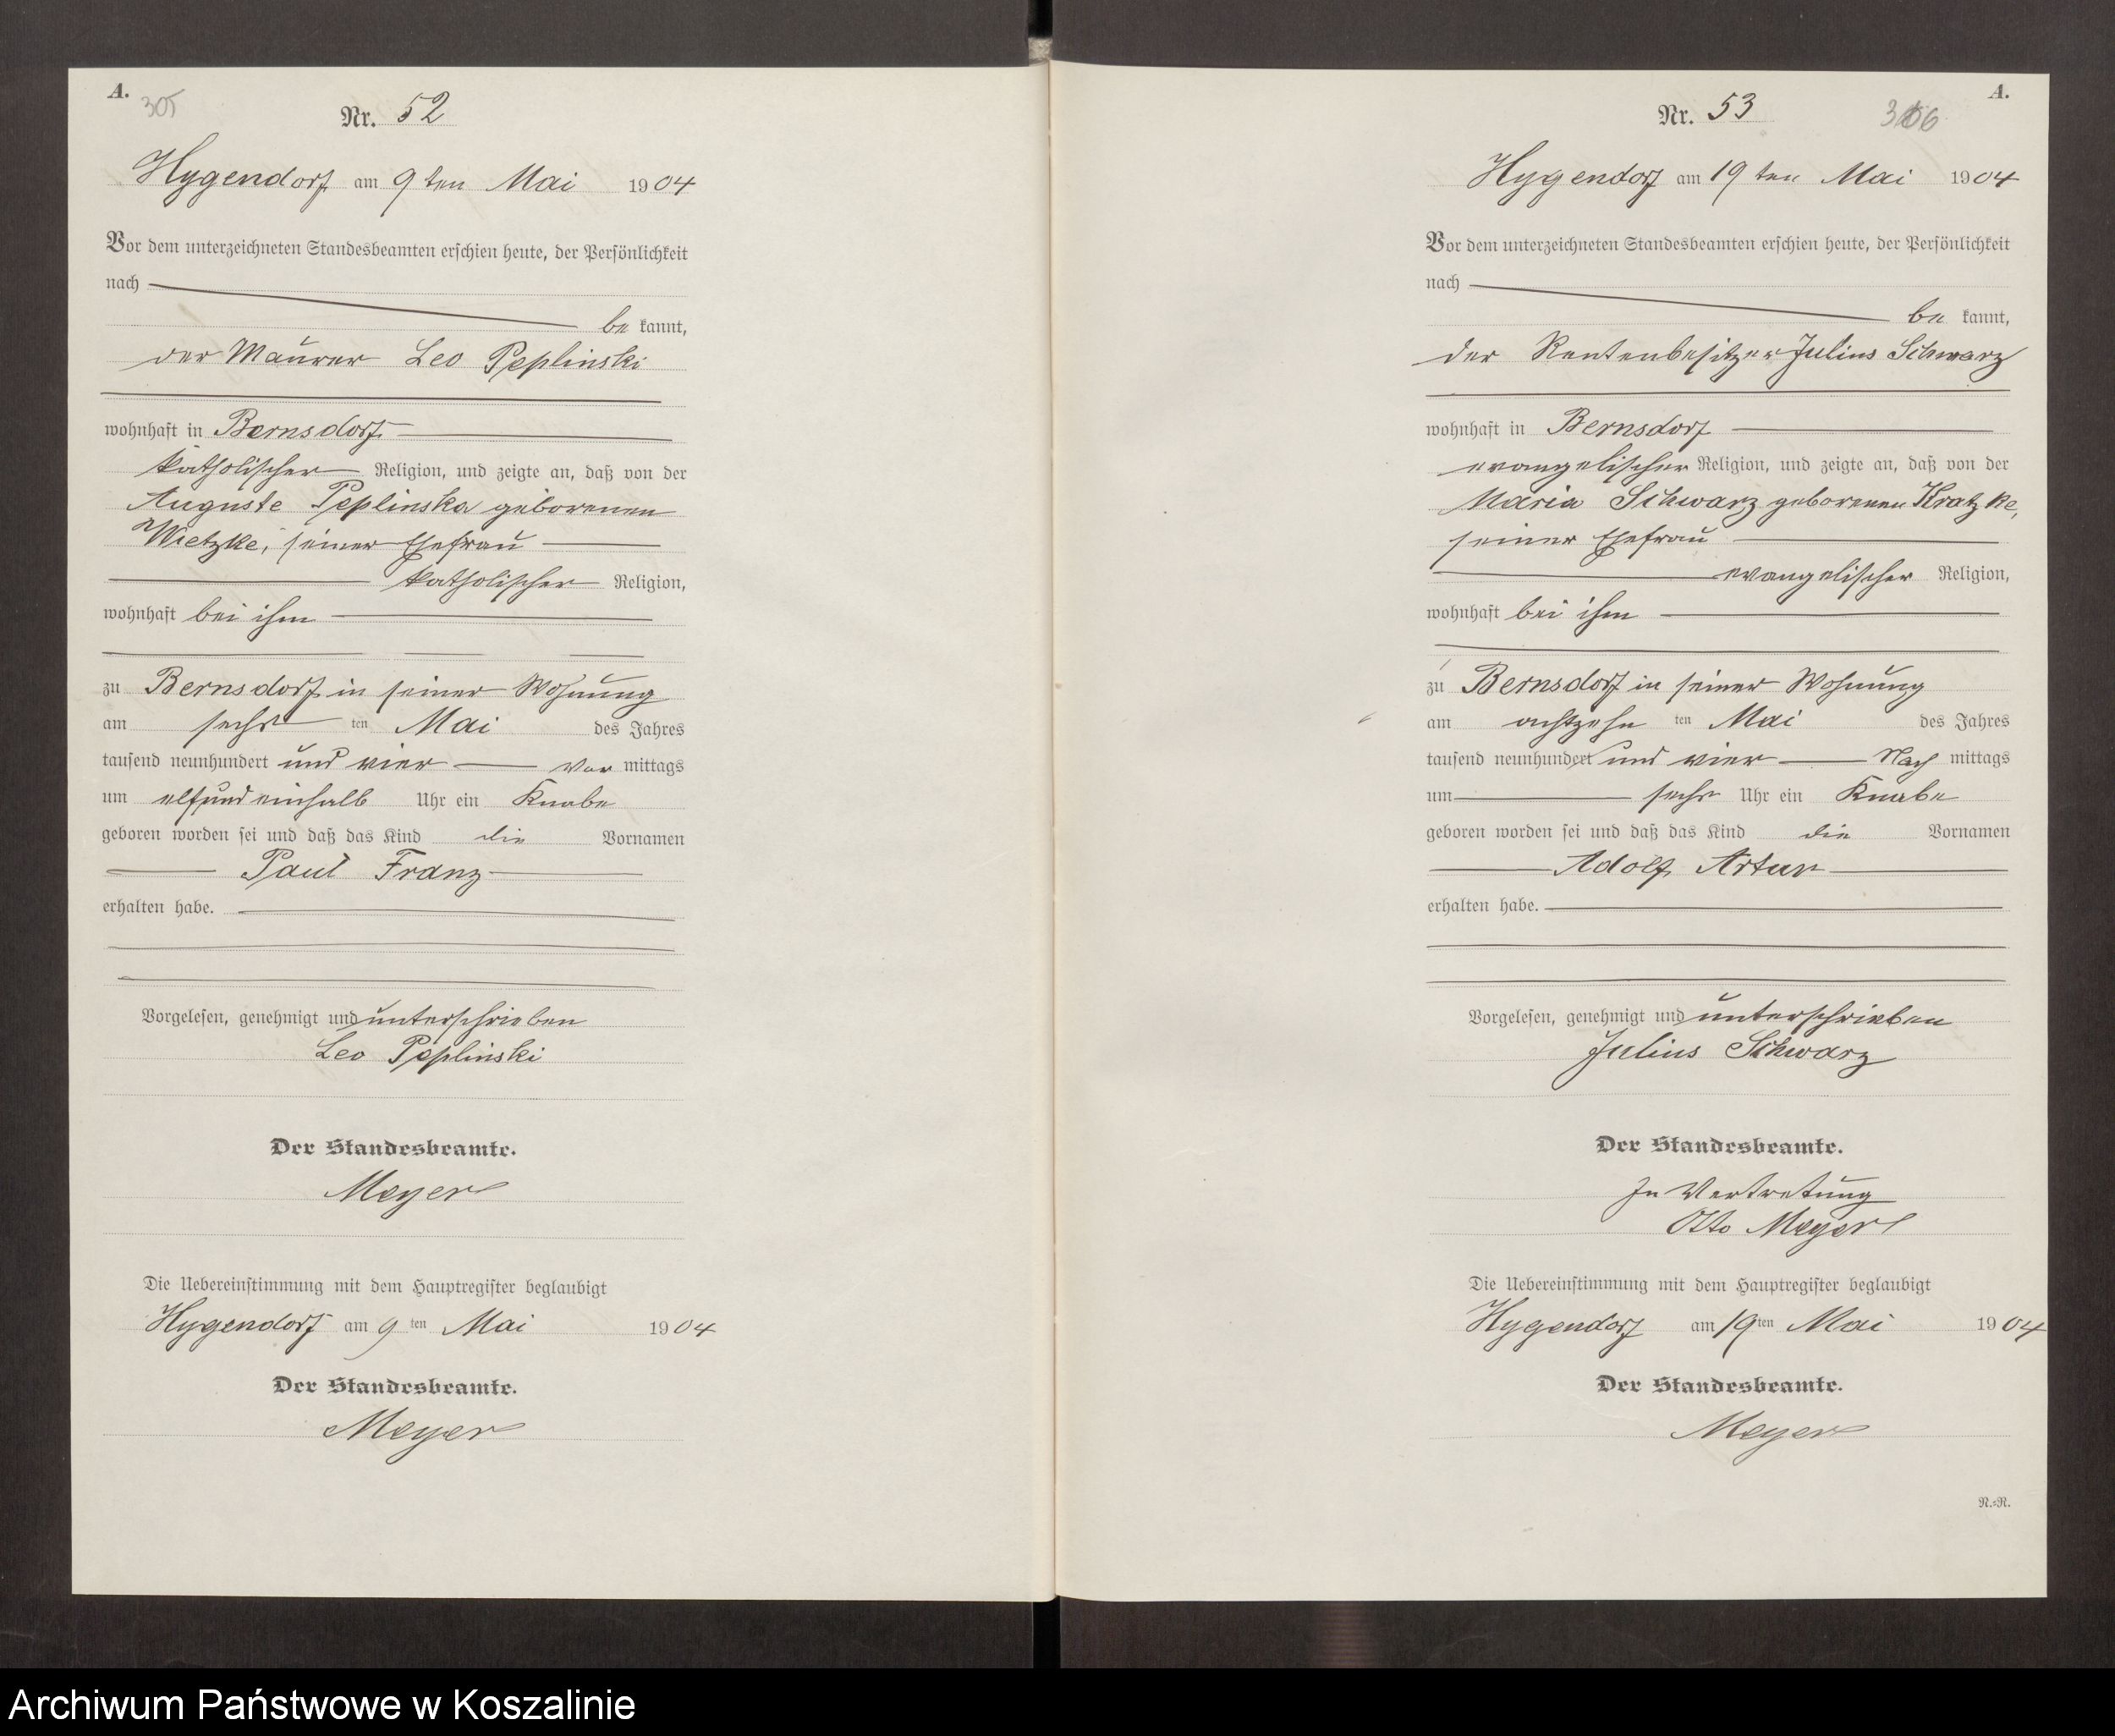 A.
305
Nr. 52
Hygendorf am 9ten Mai 1904
Vor dem unterzeichneten Standesbeamten erschien heute, der Persönlichkeit
nach
be kannt,
der Maurer Leo Peplinski
wohnhaft in Bernsdorf
katholischer Religion, und zeigte an, daß von der
Auguste Peplinska geborenen
Wietzke, seiner Ehefrau
katholischer Religion,
wohnhaft bei ihm
zu Bernsdorf in seiner Wohnung
am sechs ten Mai des Jahres
tausend neunhundert und vier Vor mittags
um elfundeinhalb Uhr ein Knabe
geboren worden sei und daß das Kind die Vornamen
Paul Franz
erhalten habe.
Vorgelesen, genehmigt und unterschrieben
Leo Peplinski
Der Standesbeamte.
Meyer
Die Uebereinstimmung mit dem Hauptregister beglaubigt
Hygendorf am 9 ten Mai 1904
Der Standesbeamte.
Meyer
A.
Nr. 53
306
Hygendorf am 19ten Mai 1904
Vor dem unterzeichneten Standesbeamten erschien heute, der Persönlichkeit
nach
be kannt,
der Rentenbesitzer Julius Schwarz
wohnhaft in Bernsdorf
evangelischer Religion, und zeigte an, daß von der
Maria Schwarz geborenen Kratzke,
seiner Ehefrau
evangelischer Religion,
wohnhaft bei ihm
zu Bernsdorf in seiner Wohnung
am achtzehn ten Mai des Jahres
tausend neunhundert und vier Nach mittags
um sechs Uhr ein Knabe
geboren worden sei und daß das Kind die Vornamen
Adolf Artur
erhalten habe.
Vorgelesen, genehmigt und unterschrieben
Julius Schwarz
Der Standesbeamte.
In Vertretung
Otto Meyer
Die Uebereinstimmung mit dem Hauptregister beglaubigt
Hygendorf am 19ten Mai 1904
Der Standesbeamte.
Meyer
R.=R.
Archiwum Państwowe w Koszalinie